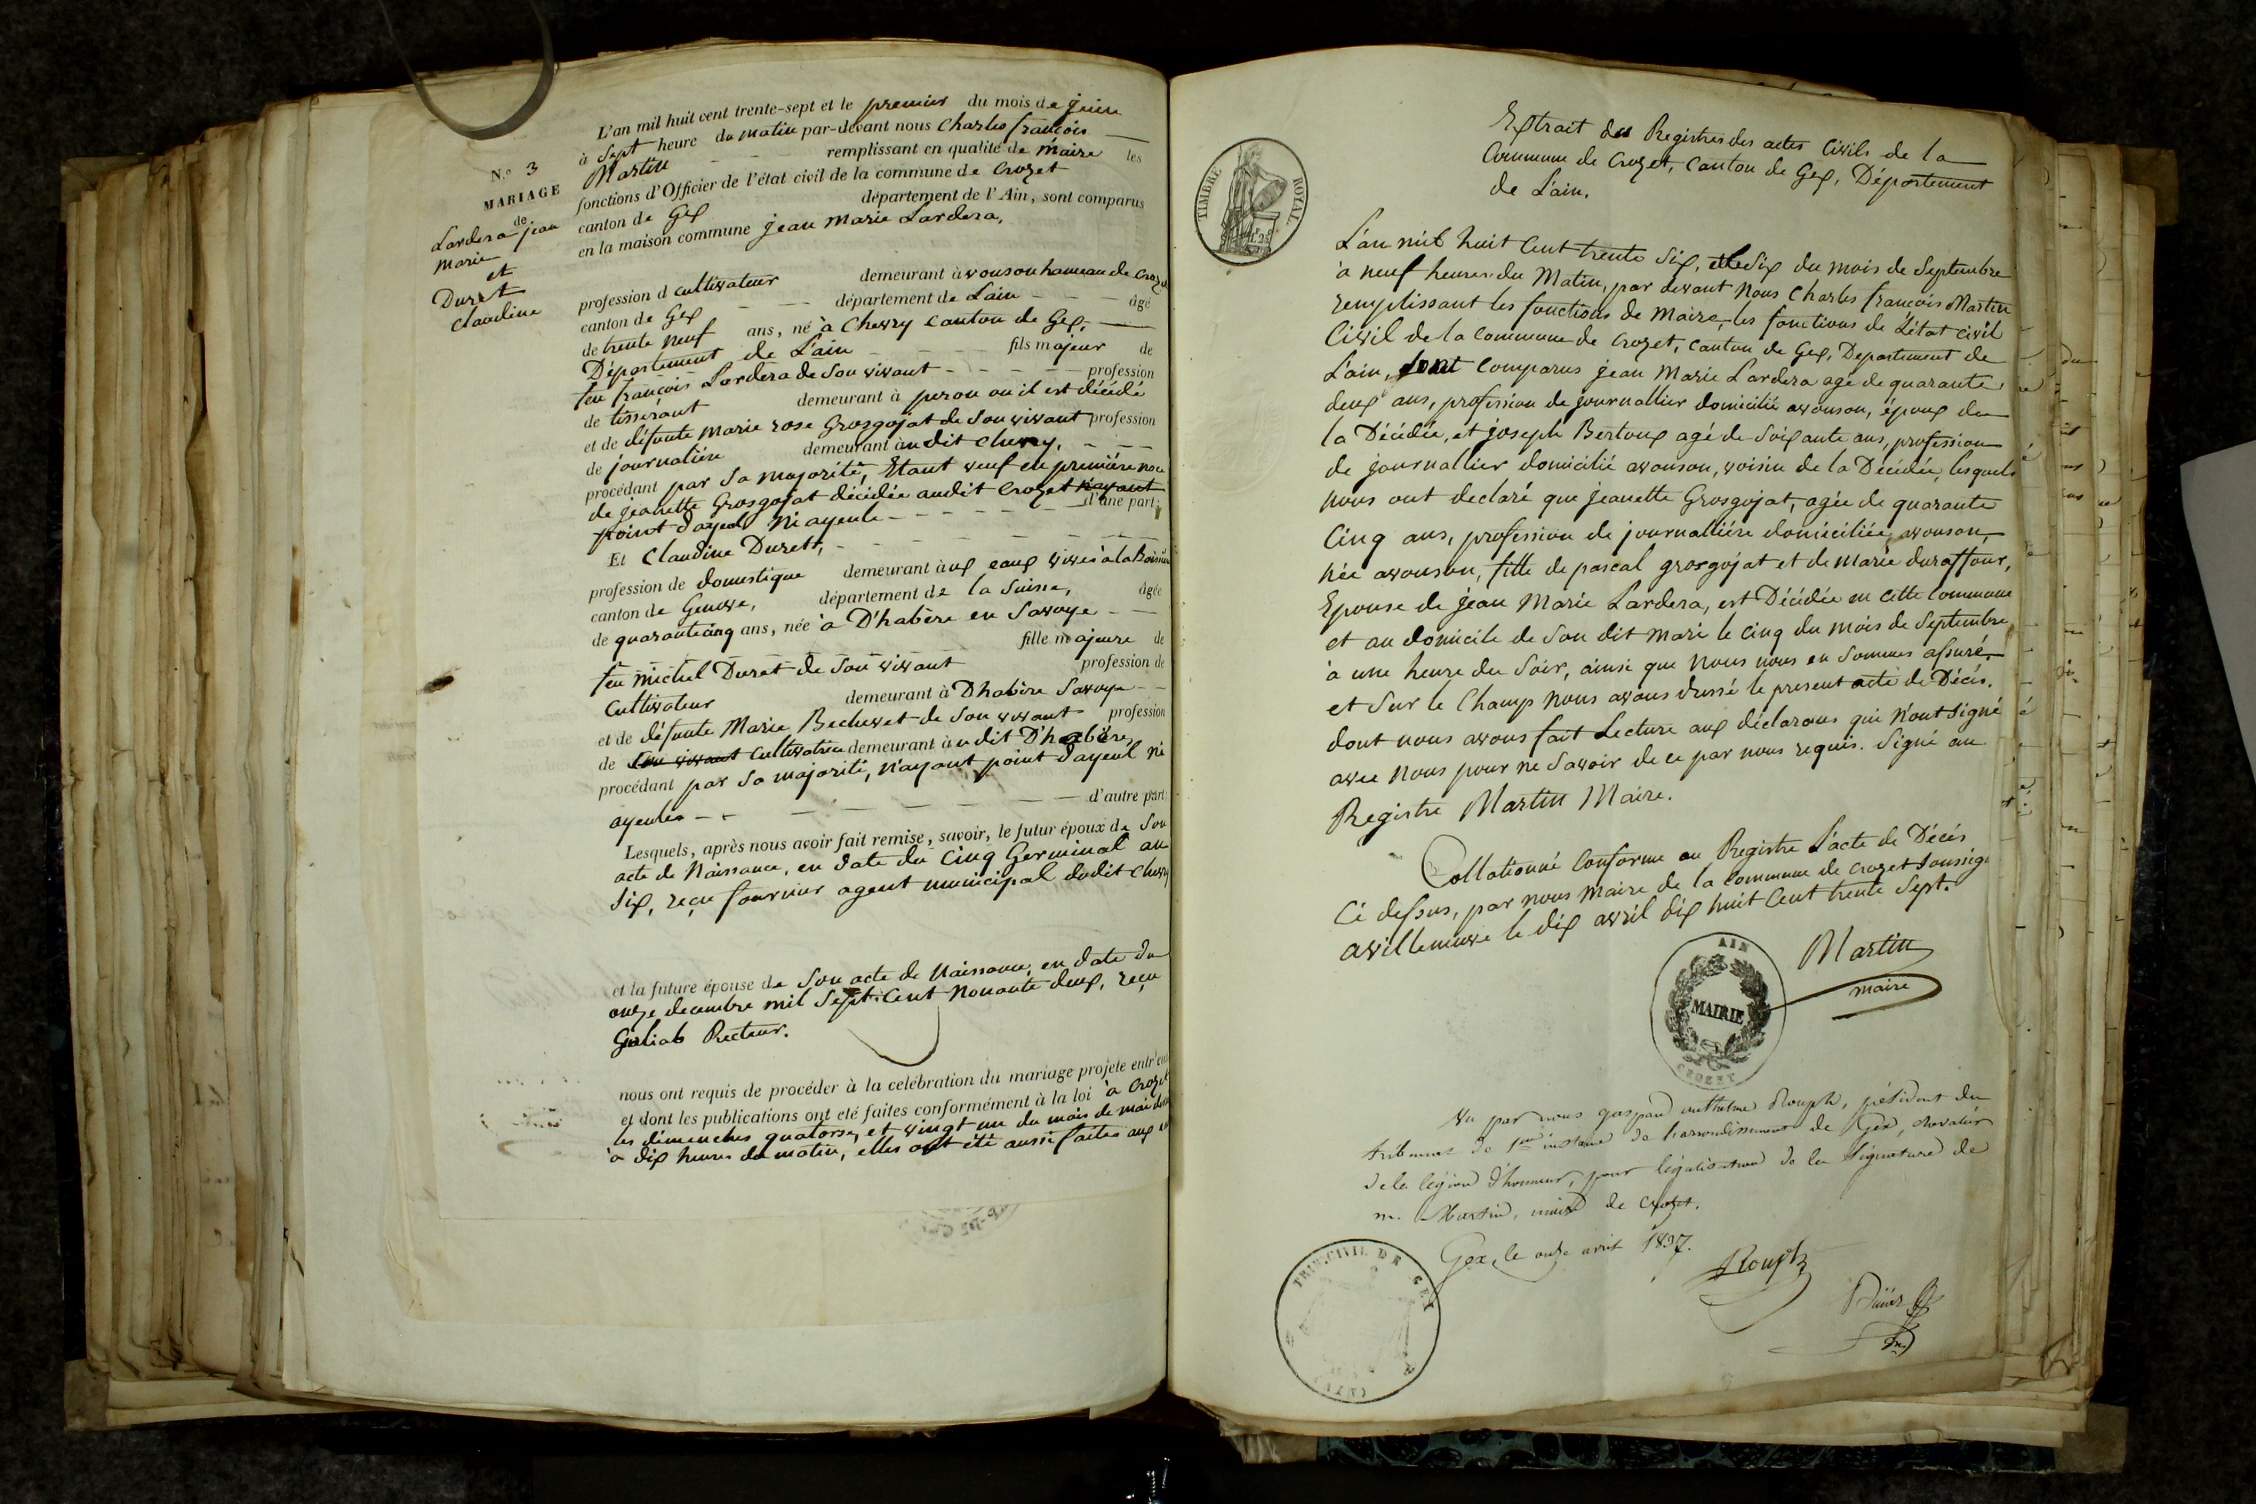 L'an mil huit cent trente-sept et le premier du mois de juin
à sept heure du matin par-devant nous Charles françois
N.º 3
MARIAGE
de
Lardera jean
Marie
et
Duret
Claudine
Martin remplissant en qualité de maire les
fonctions d'Officier de l'état civil de la commune de Crozet
canton de Gex département de l'Ain, sont comparus
en la maison commune jean Marie Lardera,
profession d cultivateur demeurant à avouson hameau de Crozet
canton de Gex département de L'ain âgé
de trente neuf ans, né à Chevry canton de Gex,
Département de L'ain fils majeur de
feu françois Lardera de son vivant profession
de tisserant demeurant à peron ou il est décédé
et de défunte Marie rose Grosgojat de son vivant profession
de journalière demeurant audit Chevry,
procédant par sa majorité, Etant veuf en première noce
de jeanette Grosgojat décédée audit Crozet n'ayant
point d'ayeul ni ayeule d'une part;
Et Claudine Durett,
profession de domestique demeurant à ux eaux vives à la
canton de Geneve, département de la Suisse, âgée
de quarante cinq ans, née à D'habère en Savoye
fille majeure de
feu michel Duret de son vivant profession de
Cultivateur demeurant à Dhabère Savoye
et de défunte Marie Bechevet de son vivant profession
de son vivant cultivatrice demeurant à u dit D'habère,
procédant par sa majorité, n'ayant point d'ayeul ni
ayeules d'autre part;
Lesquels, après nous avoir fait remise, savoir, le futur époux de Son
acte de Naissance, en date du Cinq Germinal an
Six, reçu fournier agent municipal dudit Chevry
et la future épouse de Son acte de Naissance, en date du
onze decembre mil Sept Cent Nonante deux, reçu
Recteur.
nous ont requis de procéder à la célébration du mariage projeté entr'eux
et dont les publications ont été faites conformément à la loi à Crozet
les dimanches quatorze, et vingt un du mois de mai
à dix heures du matin, elles ont été aussi faites aux
TIMBRE ROYAL
Extrait des Registres des actes Civils de la
Commune de Crozet, Canton de Gex, Département
de L'ain.
L'an mil huit Cent trente Six, et le Six du mois de Septembre
à neuf heures du Matin, par devant Nous Charles francois Martin
remplissant les fonctions de Maire, les fonctions de L'état civil
Civil de la Commune de Crozet, Canton de Gex, Département de
L'ain, sont Comparus jean Marie Lardera agé de quarante
deux ans, profession de journallier domicilié avouson, époux de
la Décédée, et joseph Bertoux agé de Soixante ans, profession
de journallier domicilié avouson, voisin de la Décédée, lesquels
nous ont declaré que jeanette Grosgojat, agée de quarante
Cinq ans, profession de journallière domiciliée avouson,
née avouson, fille de pascal grosgojat et de Marie duraffour,
Epouse de jean Marie Lardera, est Décédée en cette Commune
et au domicile de Son dit Mari le cinq du mois de Septembre
à une heure du Soir, ainsi que Nous nous en Sommes assuré,
et Sur le Champ Nous avons dressé le present acte de Décès.
dont nous avons fait Lecture aux déclarans qui n'ont Signé
avec Nous pour ne Savoir de ce par nous requis. Signé au
Registre Martin Maire.
Collationné Conforme au Registre L'acte de Décès
Ci dessus, par nous Maire de la Commune de Crozet Soussigné
avilleneuve le dix avril dix huit Cent trente Sept.
Martin
maire
AIN
MAIRIE
CROZET
Vu par nous gaspard anthelme Rouph, président du
tribunal de 1ere instance de l'arrondissement de Gex, chevalier
de la légion d'honneur, pour légalisation de la Signature de
m. Martin, maire de Crozet.
Gex, le onze avril 1837.
Rouph
TRIB. CIVIL DE GEX